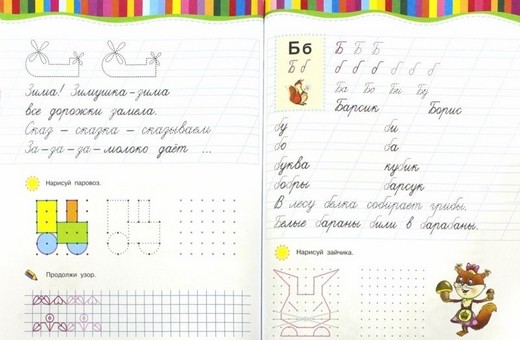 Зима! Зимушка-зима
все дорожки замела.
Сказ - сказка - сказываем
За-да-за-молоко даёт ...
Нарисуй паровоз.
Продолжи узор.
Бб Б Б Б
Б б б б б б б б
Ба Бо Бы Бу
Барсик Борис
бу би
бо ба
буква кубик
бобры барсук
В лесу белка собирает грибы.
Белые бараны били в барабаны.
Нарисуй зайчика.